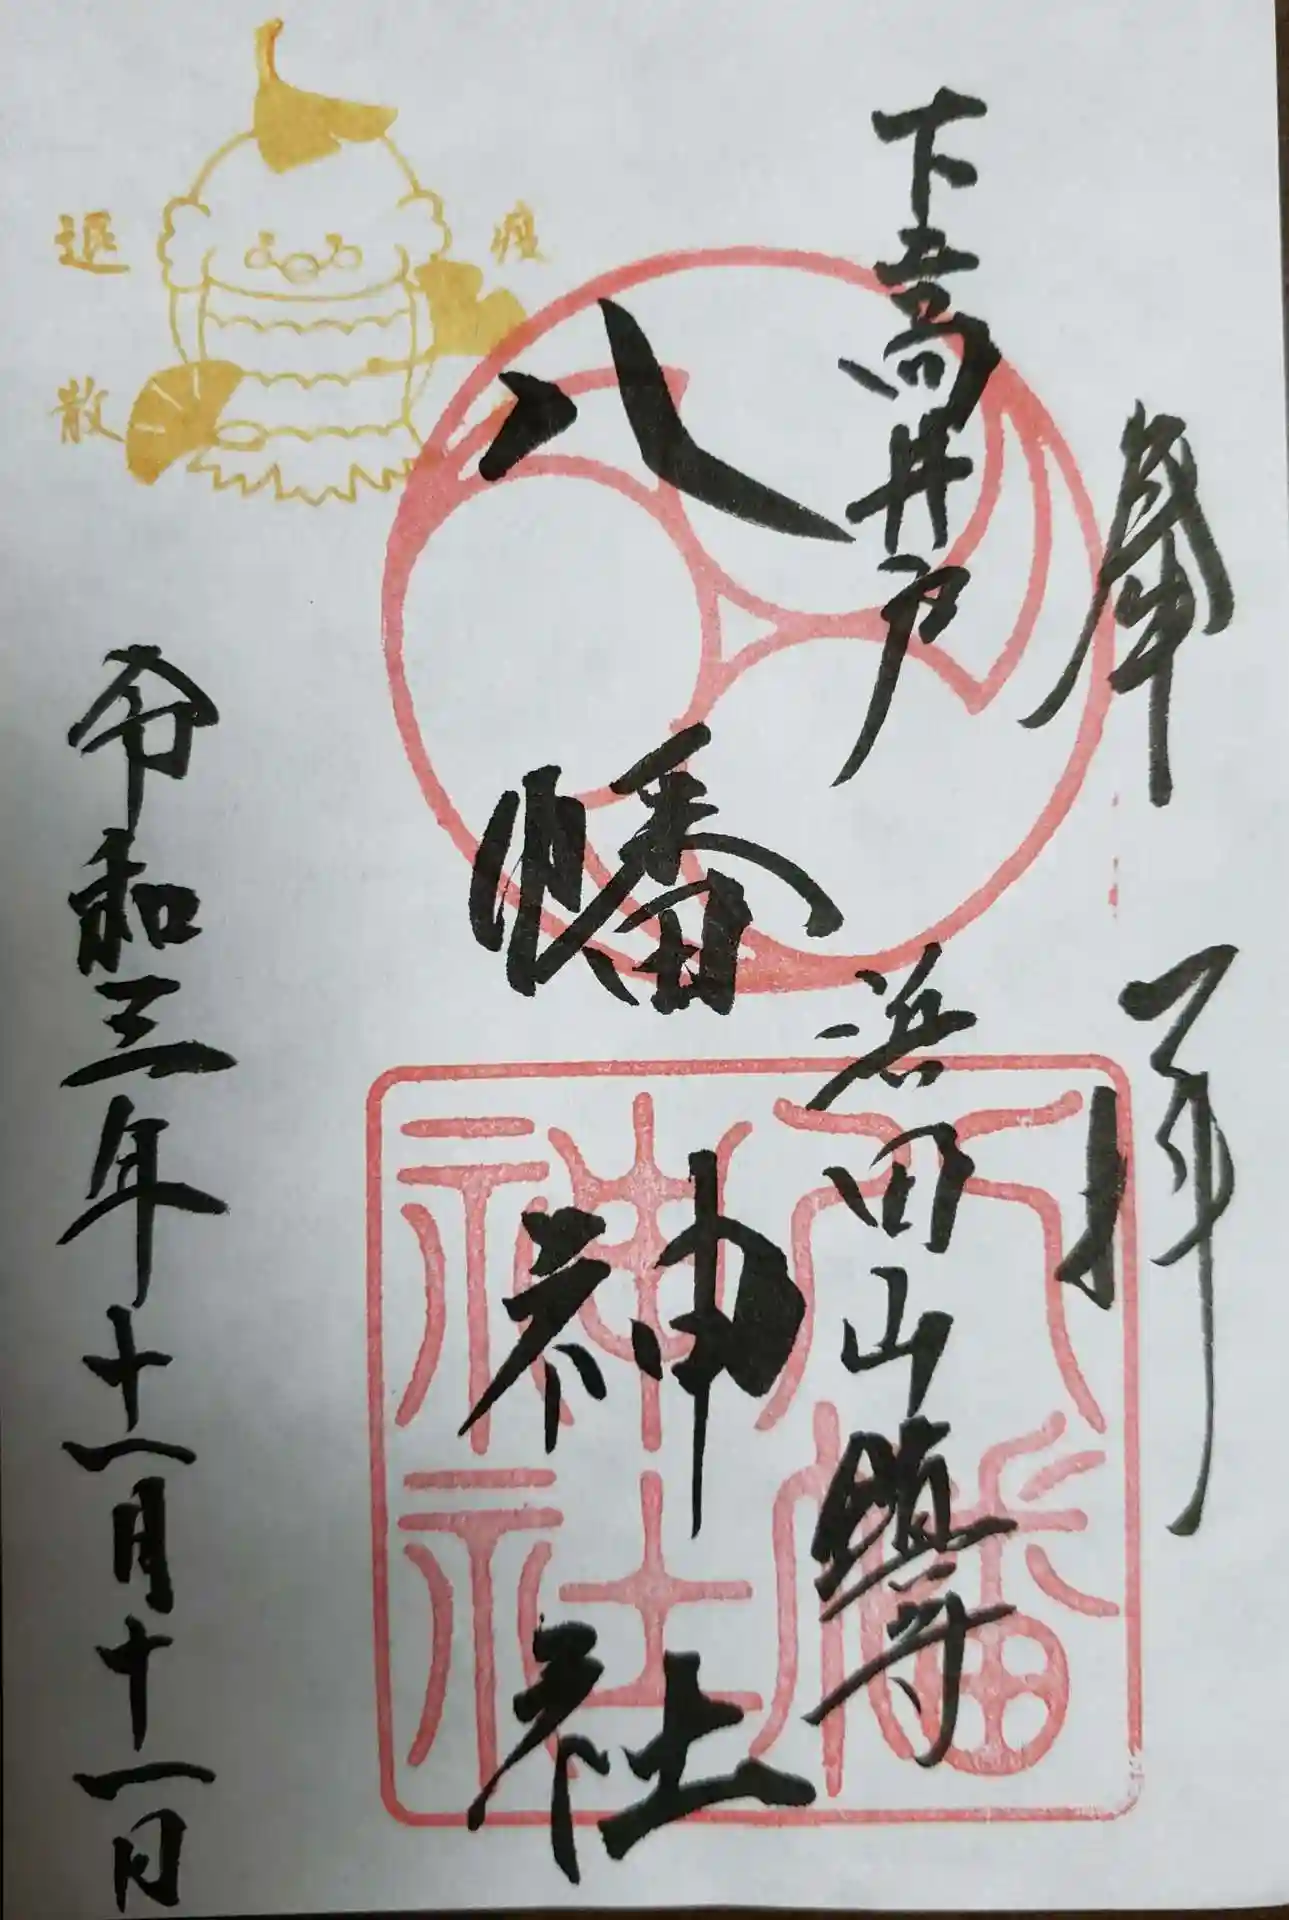 奉拝
下高井戸
浜田山鎮守
八幡神社
八幡神社
疫
退散
令和三年十一月十一日